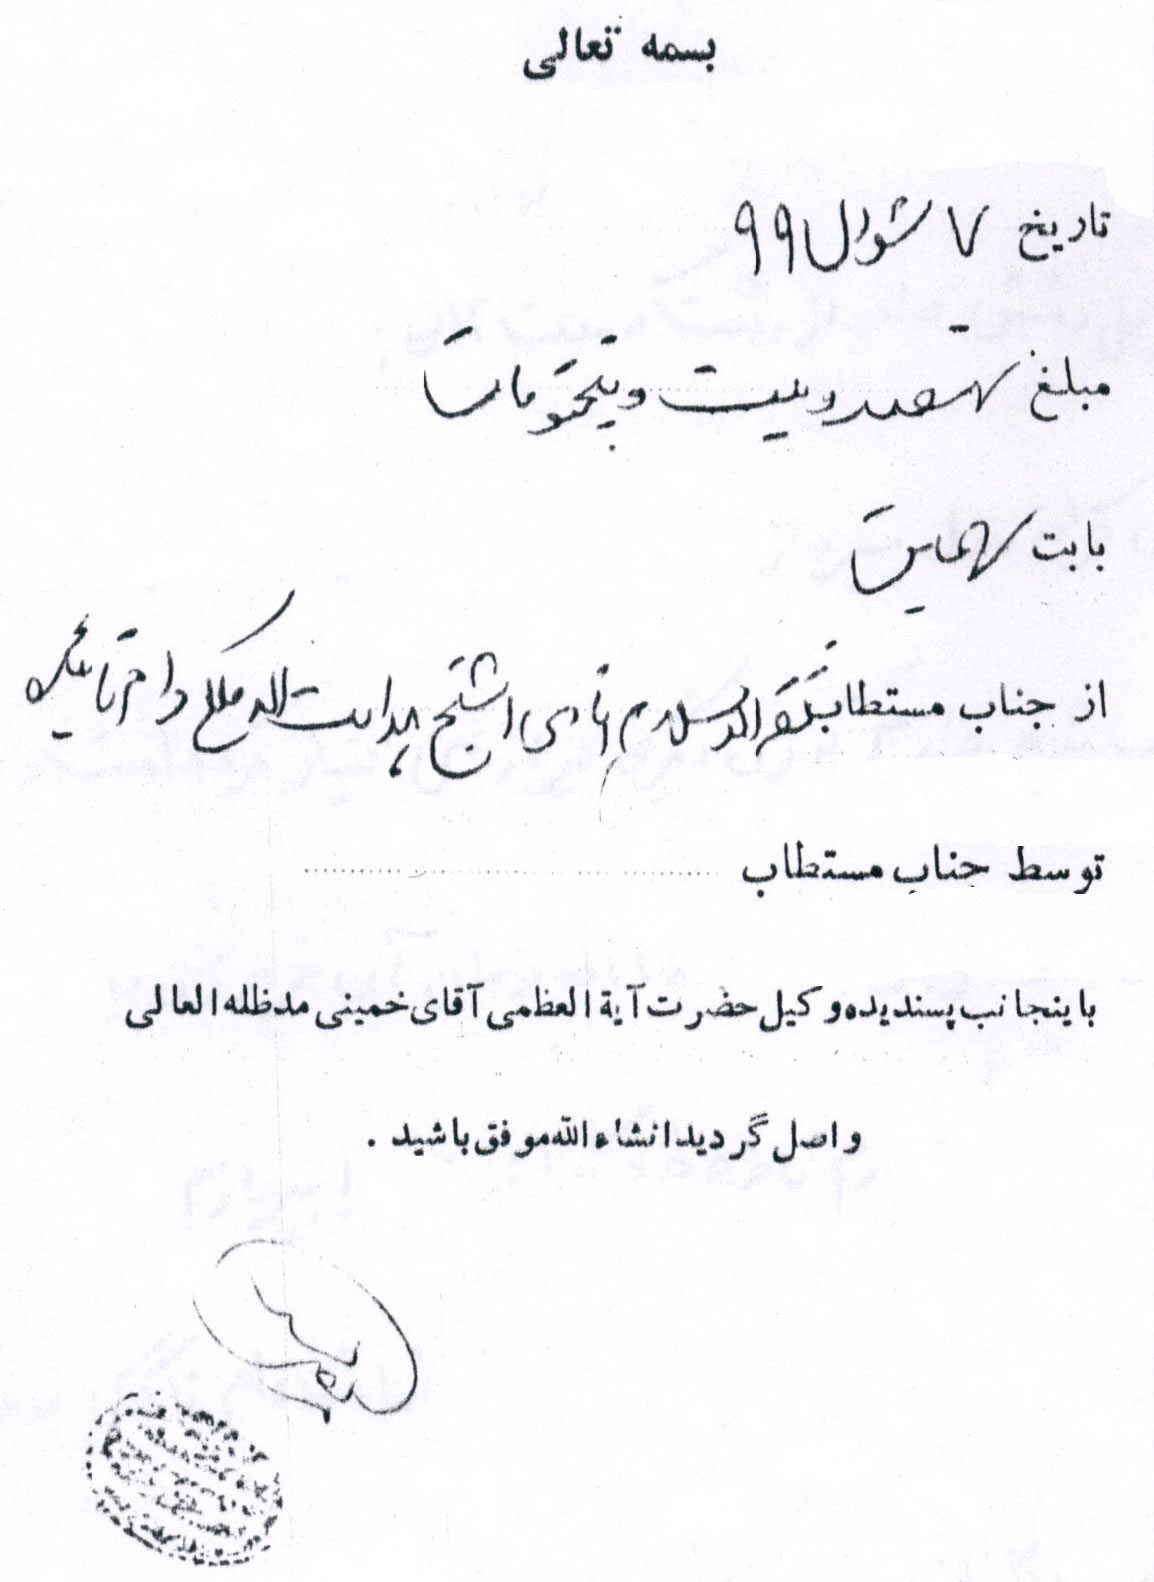 بسمه تعالی
تاریخ ۷ شوال ۹۹
مبلغ و بیست و پنجتومانست
بابت
از جناب مستطاب ثقة الاسلام آقای الشیخ هدایت الله دام تأییده
توسط جناب مستطاب
باینجانب پسندیده وکیل حضرت آیة العظمی آقای خمینی مدظله العالی
واصل گردید انشاء الله موفق باشید .